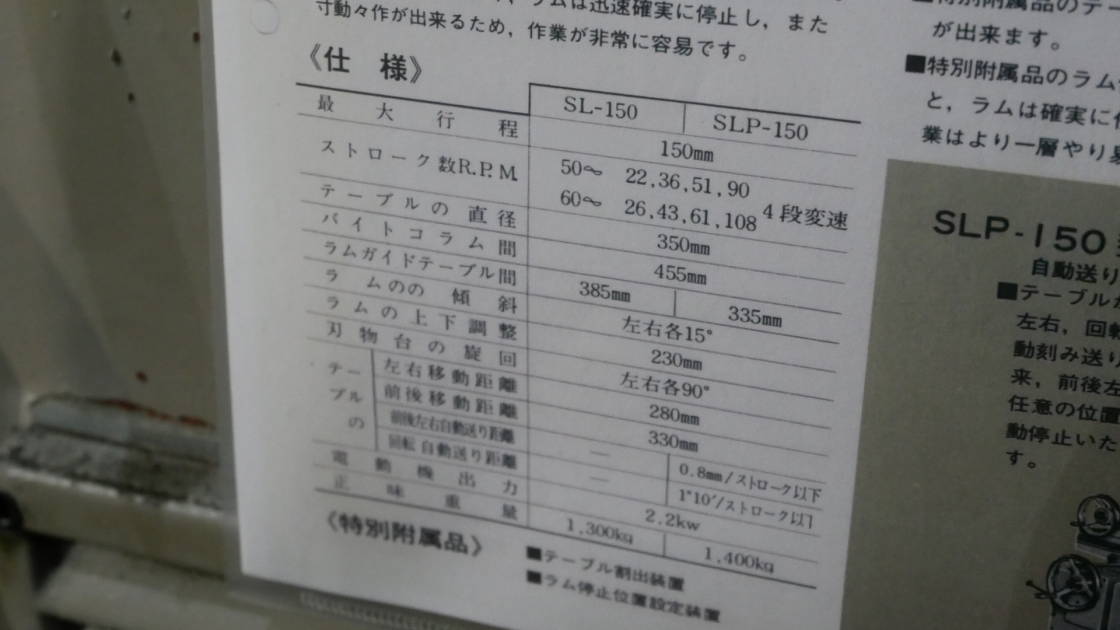 ラムは迅速確実に停止し，また
寸動々作が出来るため，作業が非常に容易です。
《仕　様》
SL-150　SLP-150
最大行程　150㎜
ストローク数R.P.M.　50～　22,36,51,90
60～　26,43,61,108　4段変速
テーブルの直径　350㎜
バイトコラム間　455㎜
ラムガイドテーブル間　385㎜　335㎜
ラムのの傾斜　左右各15°
ラムの上下調整　230㎜
刃物台の旋回　左右各90°
テーブルの　左右移動距離　280㎜
前後移動距離　330㎜
前後左右自動送り距離　―　0.8㎜/ストローク以下
回転自動送り距離　―　1°10′/ストローク以下
電動機出力　2.2kw
正味重量　1,300kg　1,400kg
《特別附属品》
■テーブル割出装置
■ラム停止位置設定装置
■特別附属品のテー
が出来ます。
■特別附属品のラム
と，ラムは確実に
業はより一層やり
SLP-150
自動送り
■テーブル
左右，回転
動刻み送り
来，前後左
任意の位置
動停止いた
す。